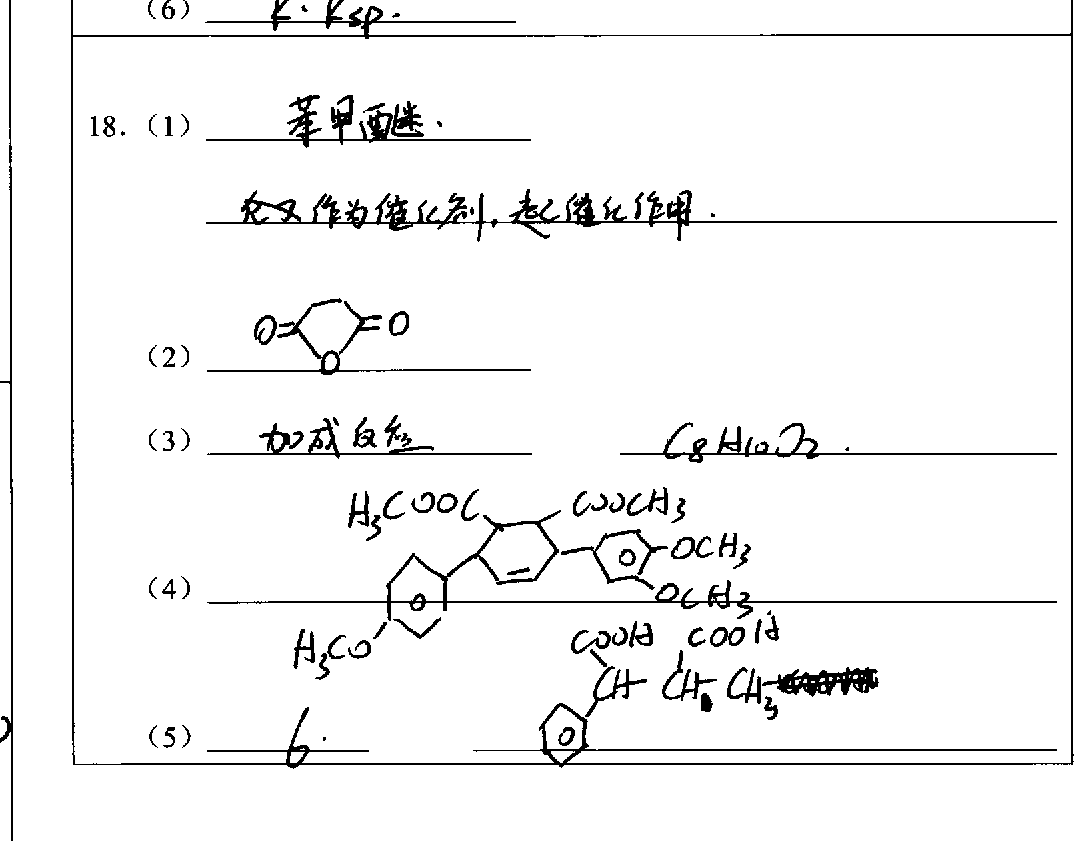 (6) K·Ksp.
18. (1) 苯甲醚.
作为催化剂,起催化作用.
O= =O
O
(2)
(3) 加成反应 C8H10O2.
H3COOC COOCH3
OCH3
(4) OCH3
H3CO
COOH COOH
CH- CH CH3
(5) 6.